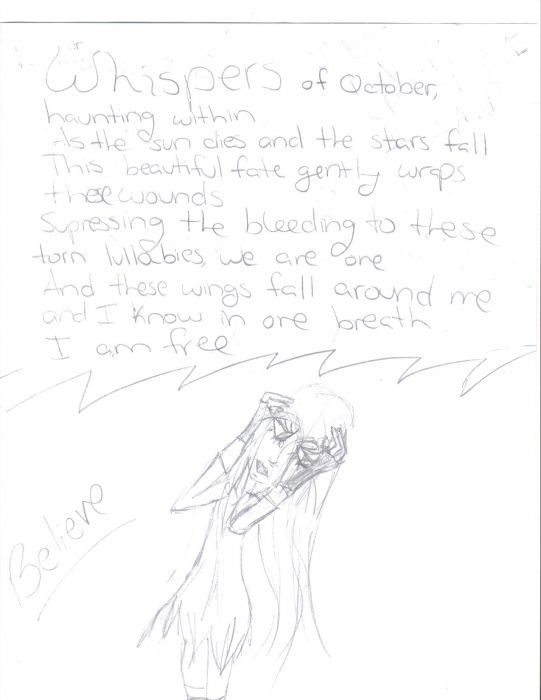 Whispers of October,
haunting within
As the sun dies and the stars fall
This beautiful fate gently wraps
these wounds
Supressing the bleeding to these
torn lullabies, we are one
And these wings fall around me
and I know in one breath
I am free
Believe